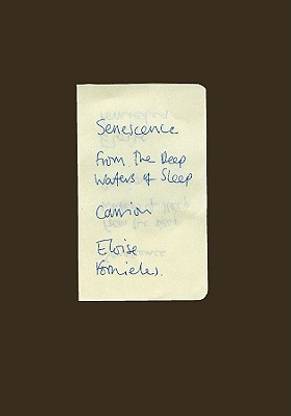 Senescence
From The Deep
Waters of Sleep
Carrion
Eloise
Fornieles.